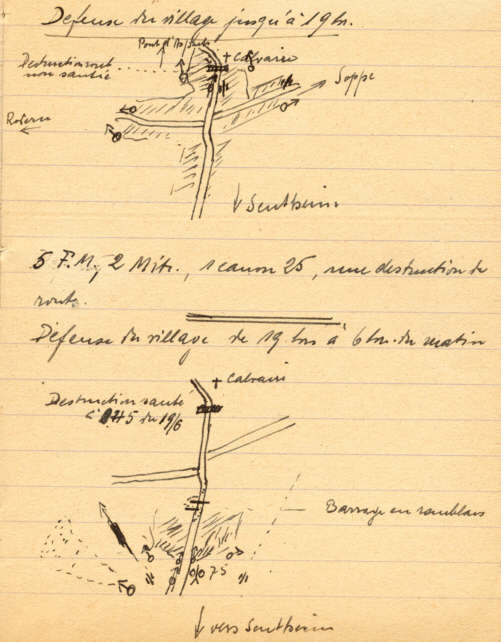 Défense du village jusqu'à 19 h.
Pont d'As
Calvaire
Destruction route
non sautée
Soppe
↓ Sentheim
5 F.M, 2 Mitr., 1 canon 25, une destruction de
route.
Défense du village de 19 hrs à 6 hrs du matin
Calvaire
Destruction sauté
à 0H45 du 19/6
Barrage en rondins
75
↓ vers Sentheim